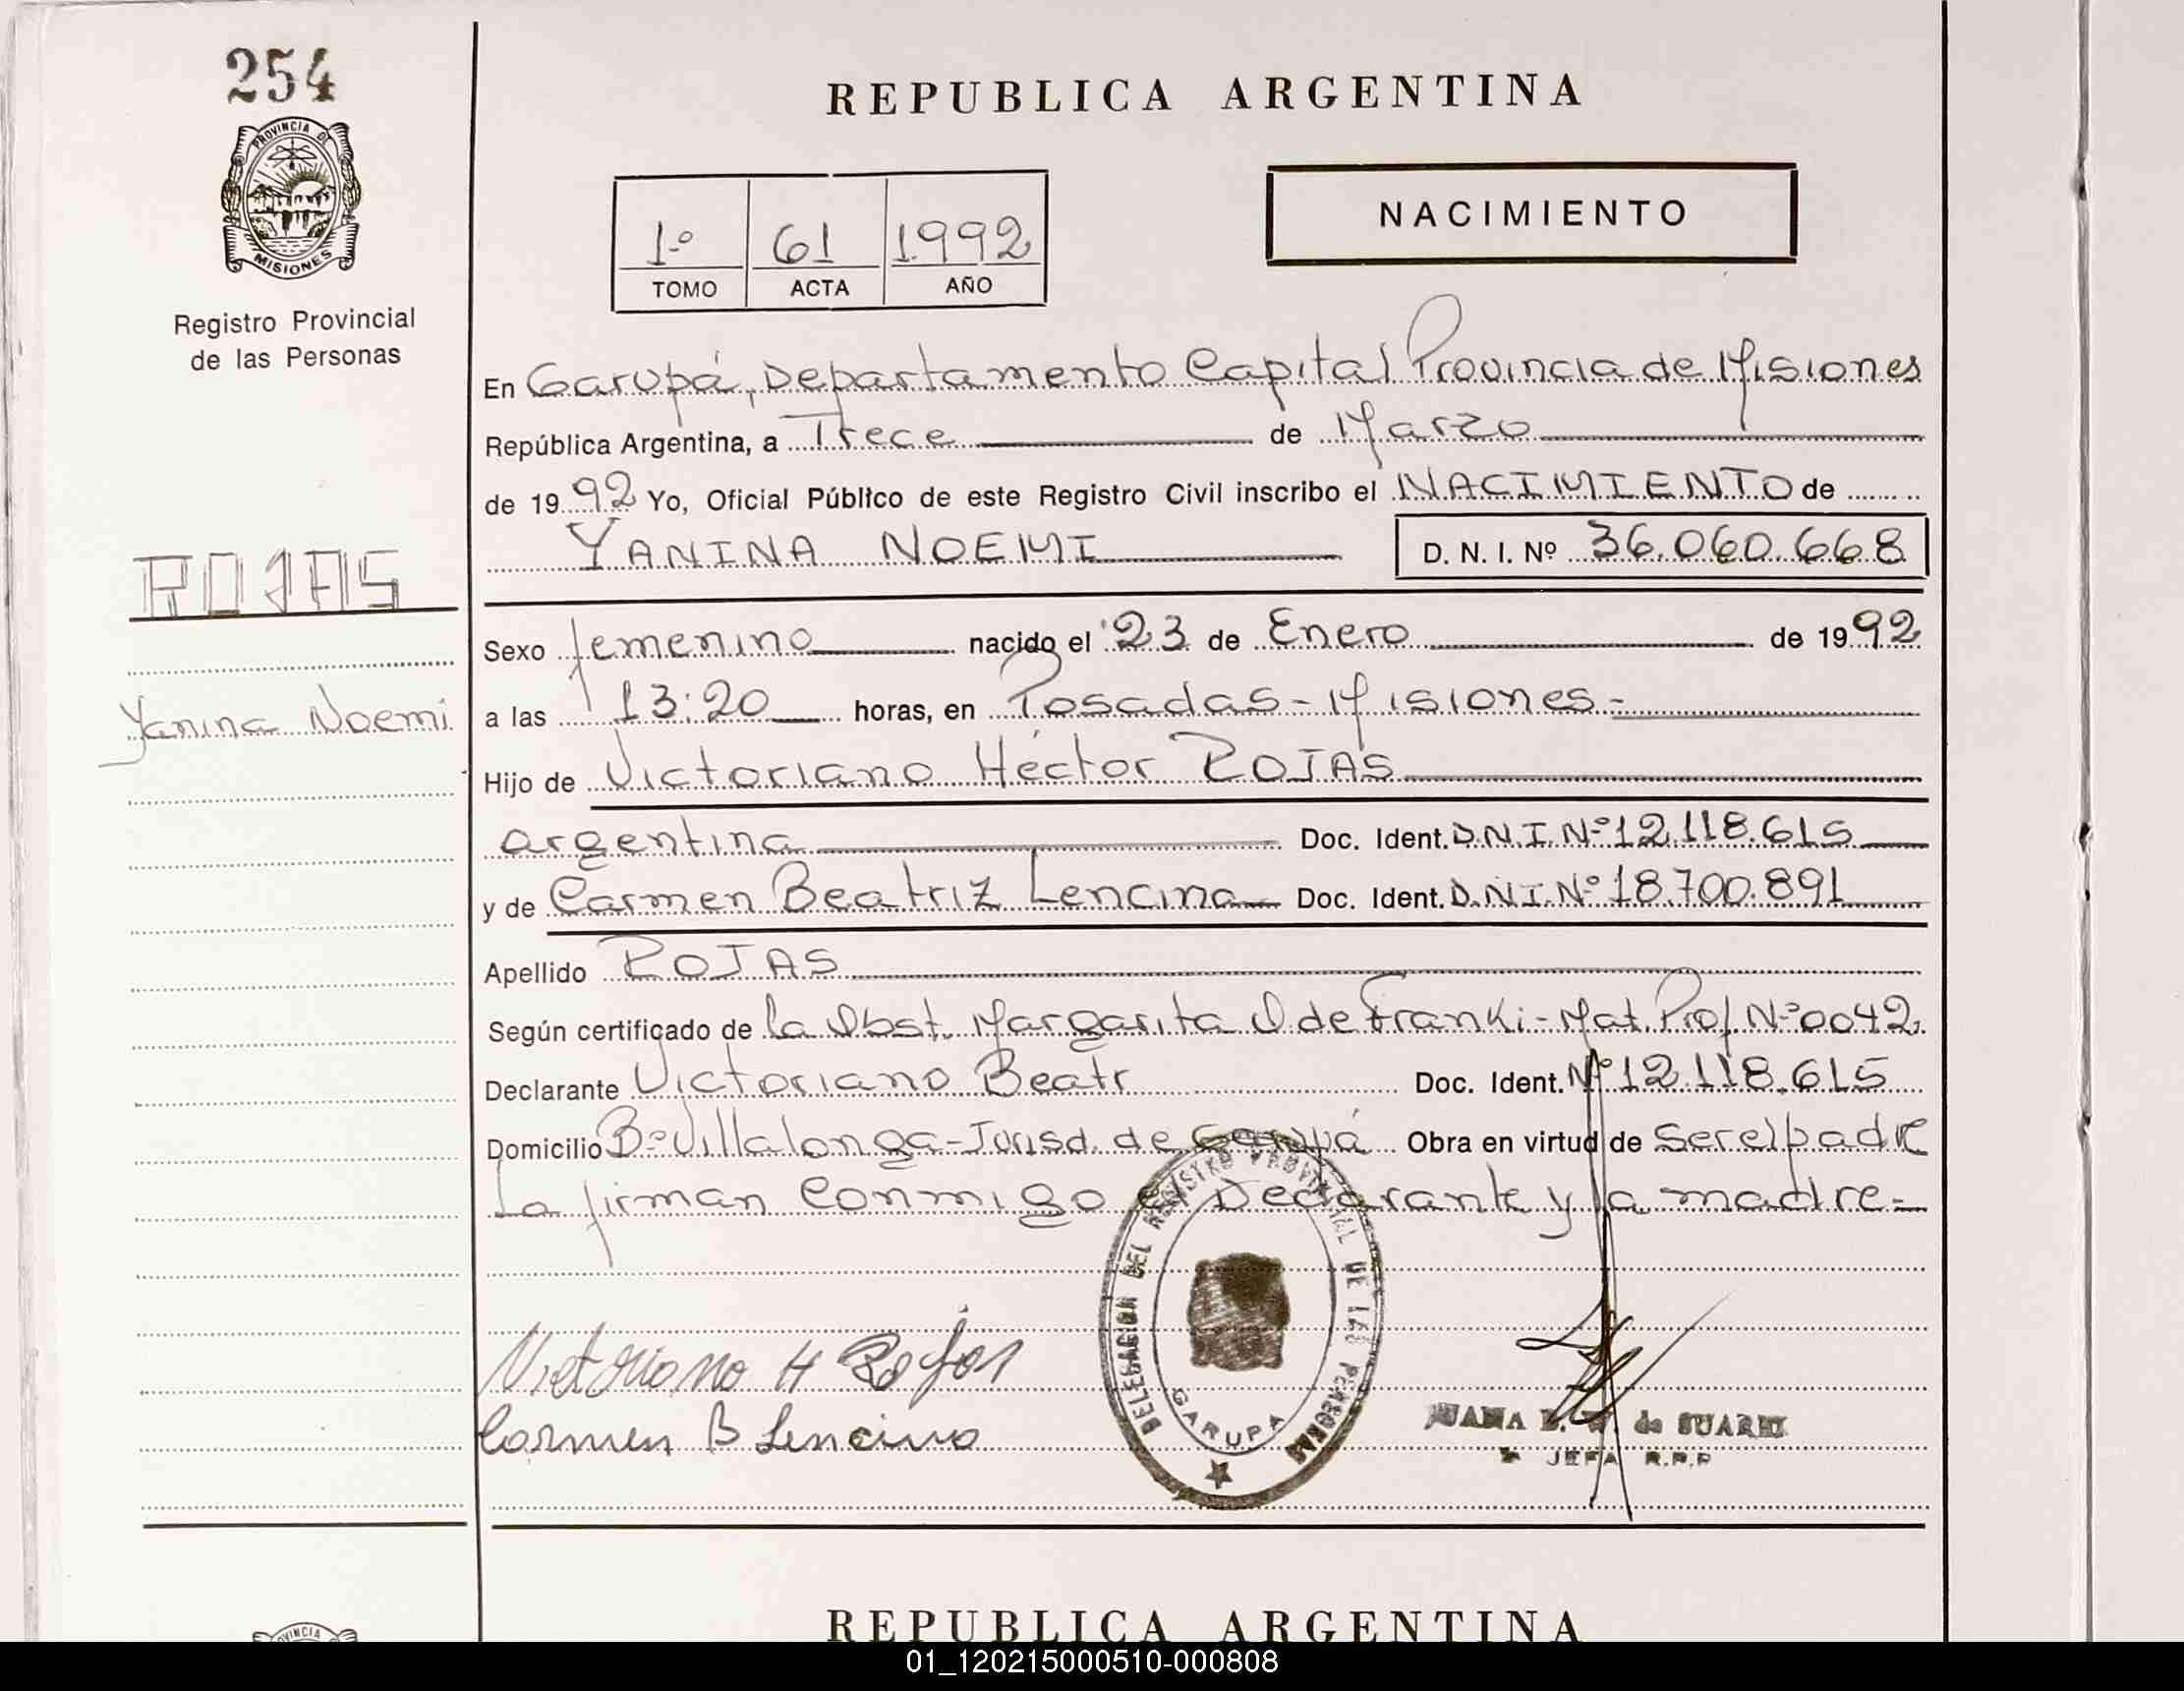 254
PROVINCIA DE
MISIONES
Registro Provincial
de las Personas
ROJAS
Yanina Noemi
REPUBLICA ARGENTINA
1º 61 1992
TOMO ACTA AÑO
NACIMIENTO
En Garupá, Departamento Capital Provincia de Misiones
República Argentina, a Trece de Marzo
de 1992 Yo, Oficial Público de este Registro Civil inscribo el NACIMIENTO de
YANINA NOEMI D. N. I. Nº 36.060.668
Sexo femenino nacido el 23 de Enero de 1992
a las 13:20 horas, en Posadas - Misiones -
Hijo de Victoriano Héctor ROJAS
argentina Doc. Ident. D.N.I. Nº 12.118.615
y de Carmen Beatriz Lencina Doc. Ident. D.N.I. Nº 18.700.891
Apellido ROJAS
Según certificado de la Obst. Margarita O de Franki - Mat. Prof. Nº 0042.
Declarante Victoriano Beatr Doc. Ident. Nº 12.118.615
Domicilio Bº Villalonga - Jurisd. de Garupá Obra en virtud de ser el padre
La firman conmigo el Declarante y la madre -
DELEGACION DEL REGISTRO PROVINCIAL DE LAS PERSONAS
GARUPA
Victoriano H Rojas
Carmen B Lencina
JUANA de SUAREZ
JEFA R.P.P
PROVINCIA
REPUBLICA ARGENTINA
01_120215000510-000808